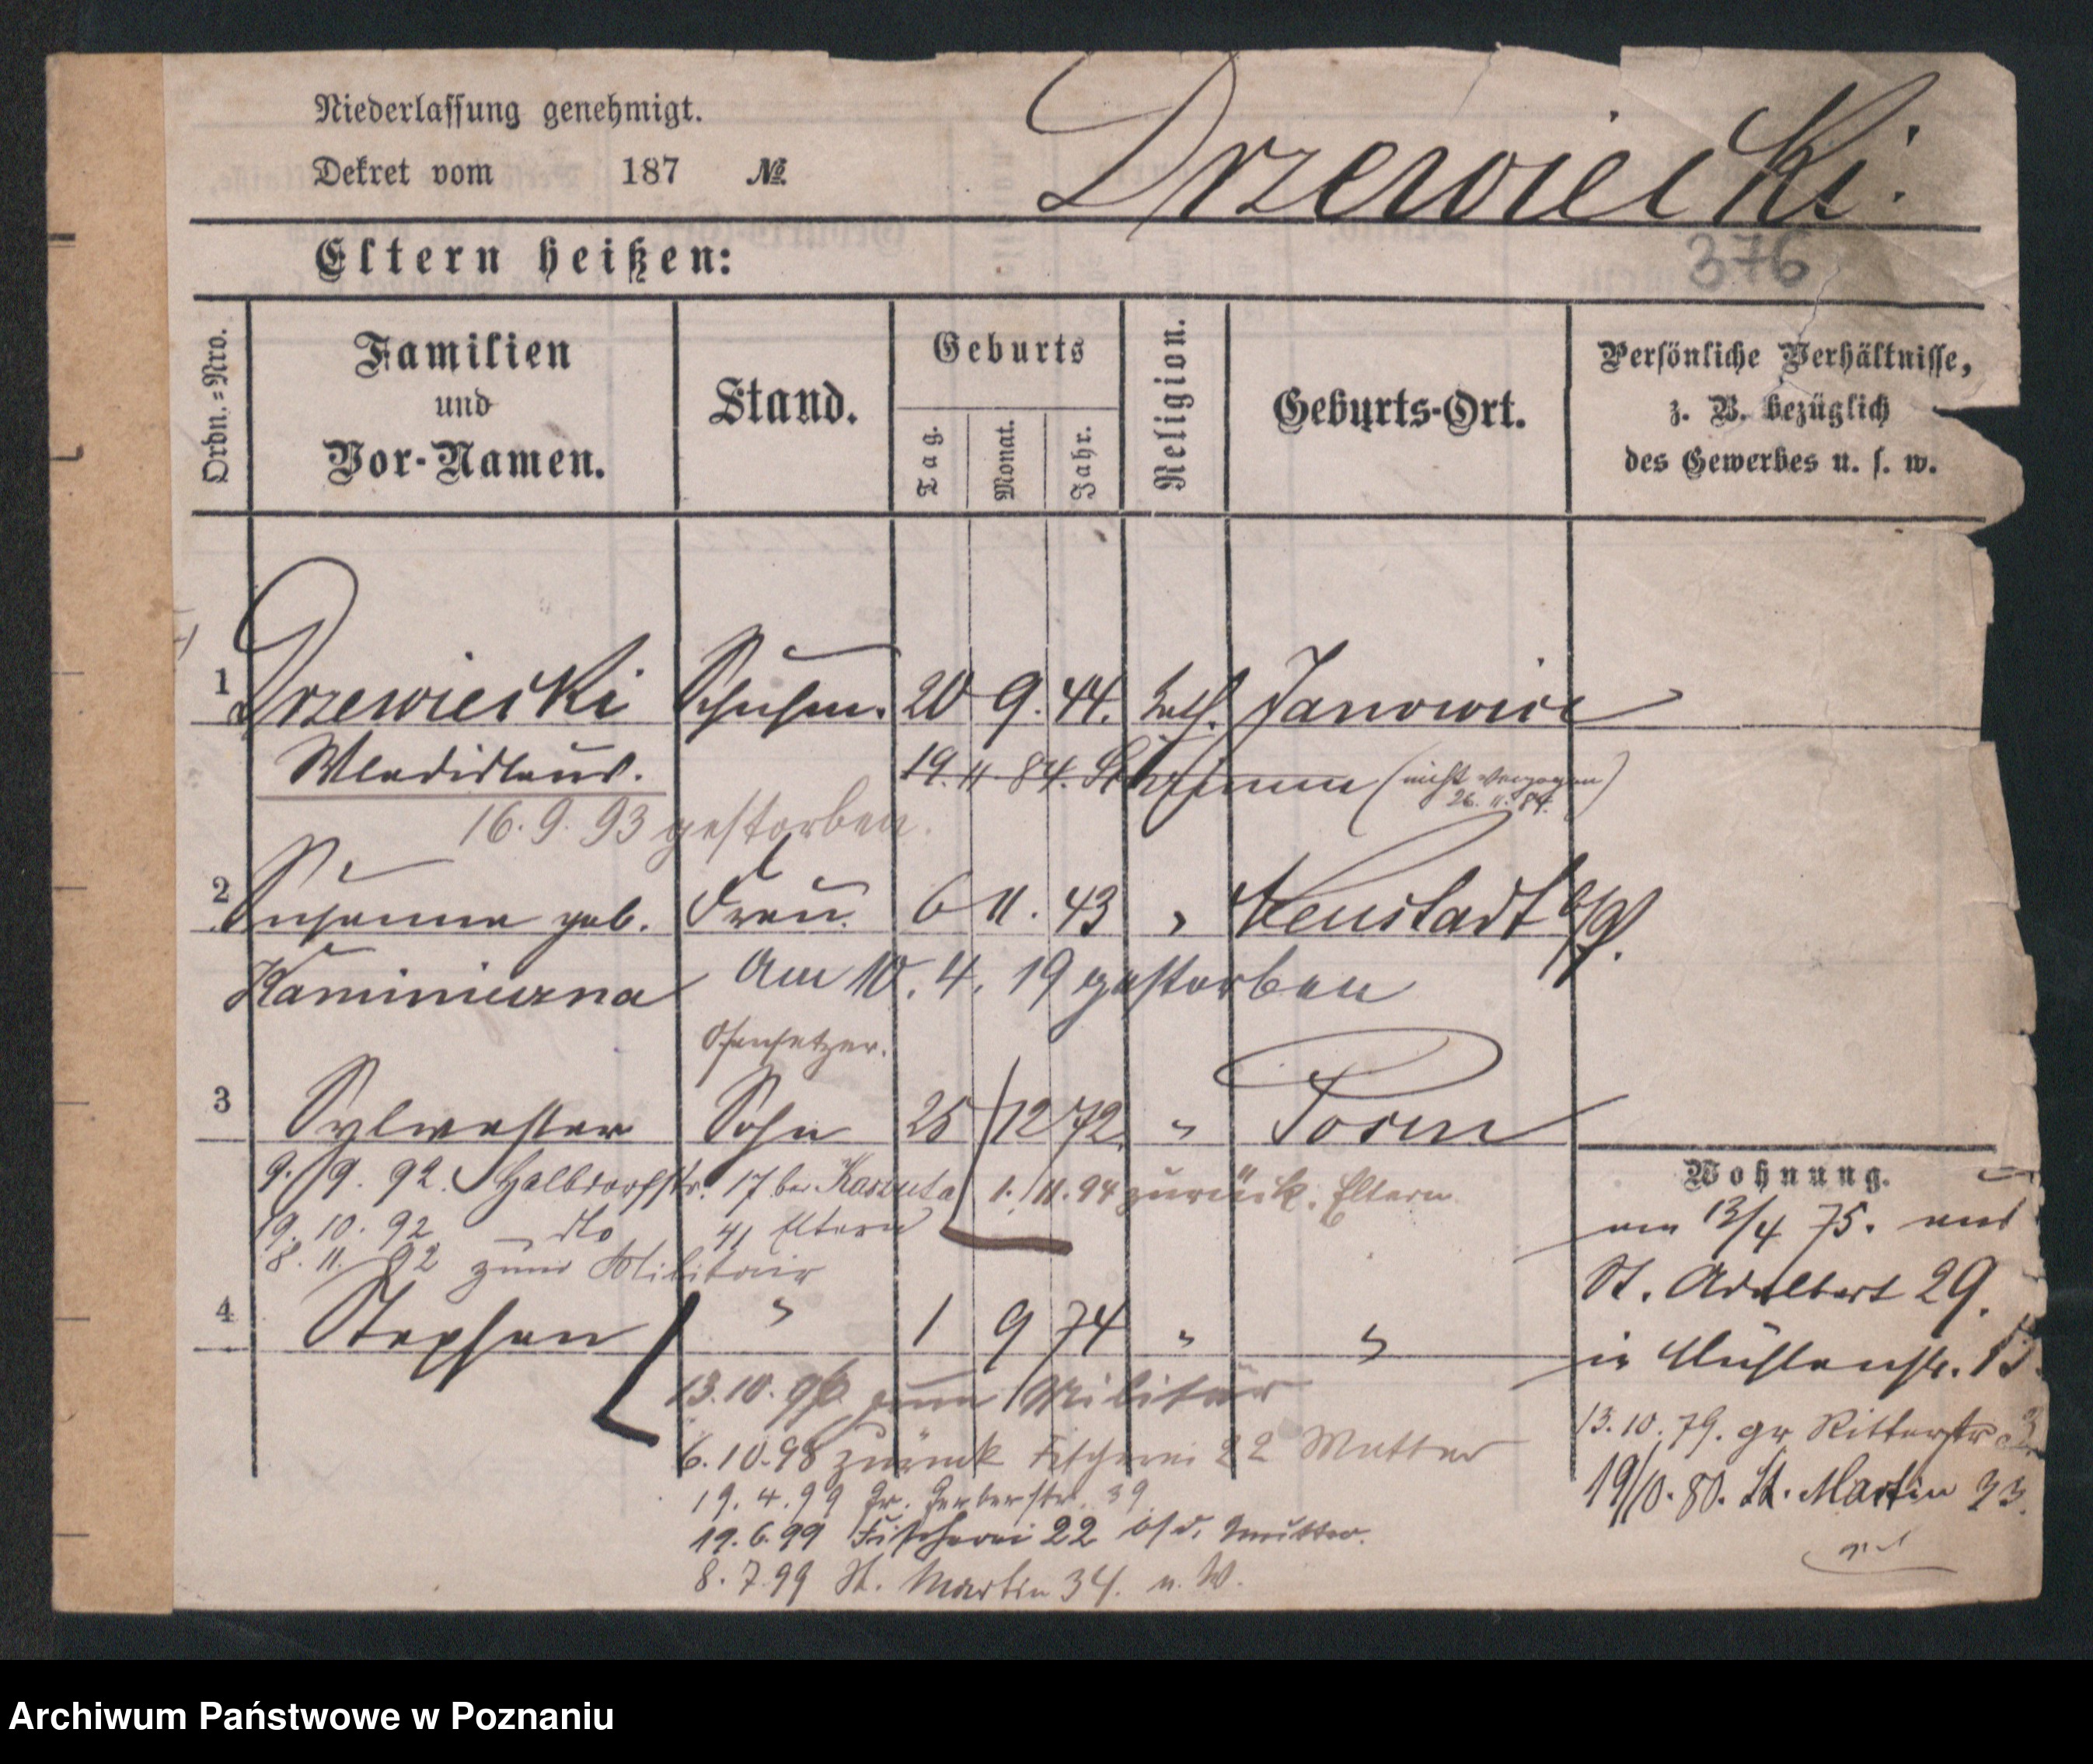 Niederlassung genehmigt.
Dekret vom 187 № Drzewiecki.
376
Eltern heißen:
Ordn.=Nro.
Familien und Vor-Namen.
Stand.
Geburts
Tag. Monat. Jahr.
Religion.
Geburts-Ort.
Persönliche Verhältnisse,
z. B. bezüglich
des Gewerbes u. s. w.
1 Drzewiecki Schuhm. 20 9. 44. kath. Janowiec
Wladislaus. 19. 11 84. Schrimm (nicht verzogen
26. 11. 84.)
16. 9. 93 gestorben.
2 Susanna geb. Frau. 6 11. 43 " Neustadt
Kaminiczna am 10. 4. 19 gestorben
Ofensetzer.
3 Sylwester Sohn 25 12 72. " Posen
9. 9. 92. Halbdorfstr. 17 bei 1. 11. 94 zurück. Eltern
19. 10. 92 dto 41 Eltern
8. 11. 92 zum Militair
4 Stephan " 1 9 74 " "
13. 10. 96 zum Militär
6. 10. 98 zurück Fischerei 22 Mutter
19. 4. 99 Gr. Gerberstr. 39
19. 6. 99 Fischerei 22 b/d. Mutter.
8. 7. 99 St. Martin 34. n. W.
Wohnung.
am 13/4 75. aus
St. Adalbert 29.
in Mühlenstr.
13. 10. 79. gr Ritterstr
19/10. 80. St. Martin 33.
Archiwum Państwowe w Poznaniu